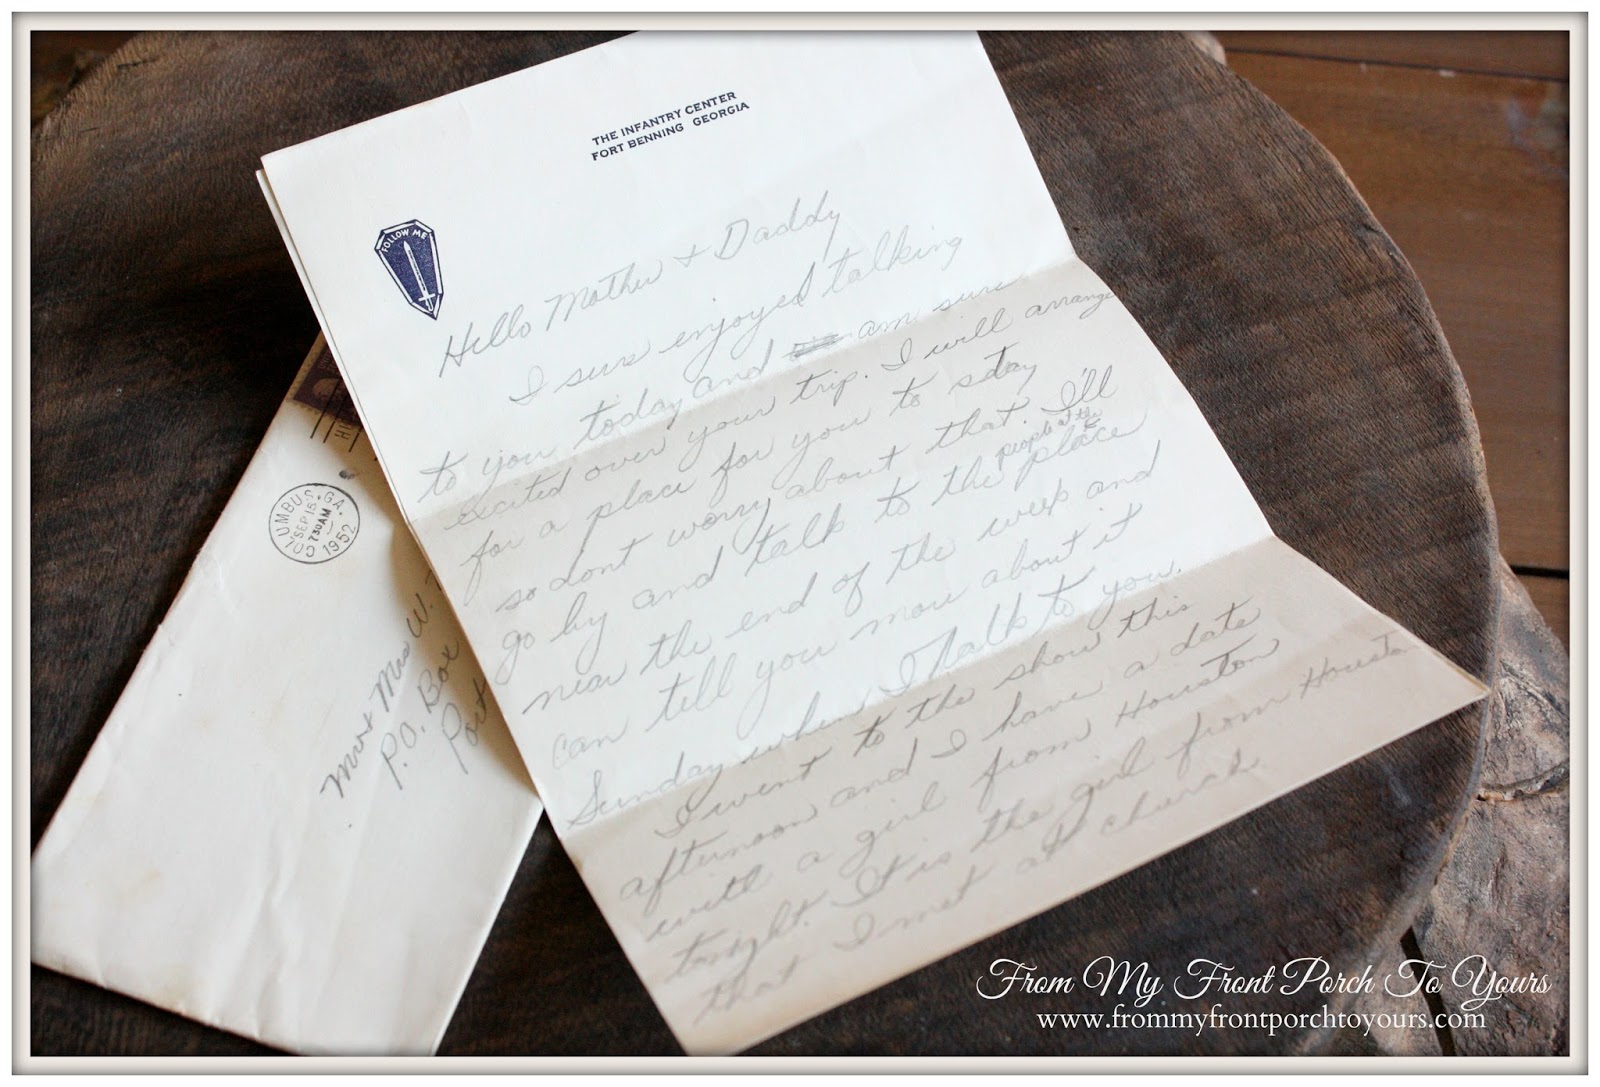 THE INFANTRY CENTER
FORT BENNING GEORGIA
FOLLOW ME
Hello Mother + Daddy
I sure enjoyed talking
to you today and am sure
excited over your trip. I will arrange
for a place for you to stay
so dont worry about that. I'll
go by and talk to the people at the place
near the end of the week and
can tell you more about it
Sunday when I talk to you.
I went to the show this
afternoon and I have a date
with a girl from Houston
tonight. It is the girl from Houston
that I met at church.
COLUMBUS, GA.
SEP 15
730 AM
1952
Mr + Mrs W.
P.O. Box
Port
From My Front Porch To Yours
www.frommyfrontporchtoyours.com